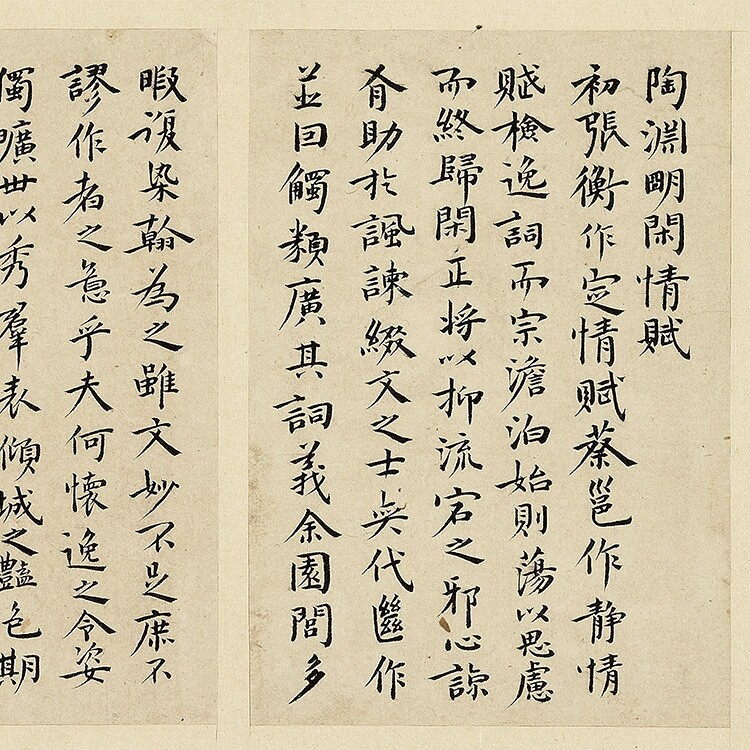 陶淵明閑情賦
初張衡作定情賦蔡邕作静情
賦檢逸詞而宗澹泊始則蕩以思慮
而終歸閑正將以抑流宕之邪心諒
有助於諷諫綴文之士奕代繼作
並因觸類廣其詞義余園閭多
暇復染翰為之雖文妙不足庶不
謬作者之意乎夫何懷逸之令姿
獨曠世以秀羣表傾城之豔色期